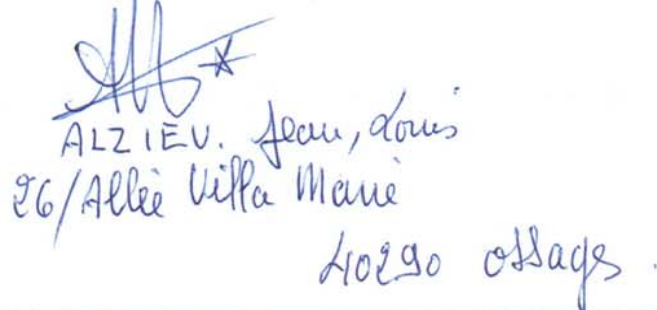 ALZIEU. Jean, Louis
26/Allée Villa Marie
40290 Ossages.